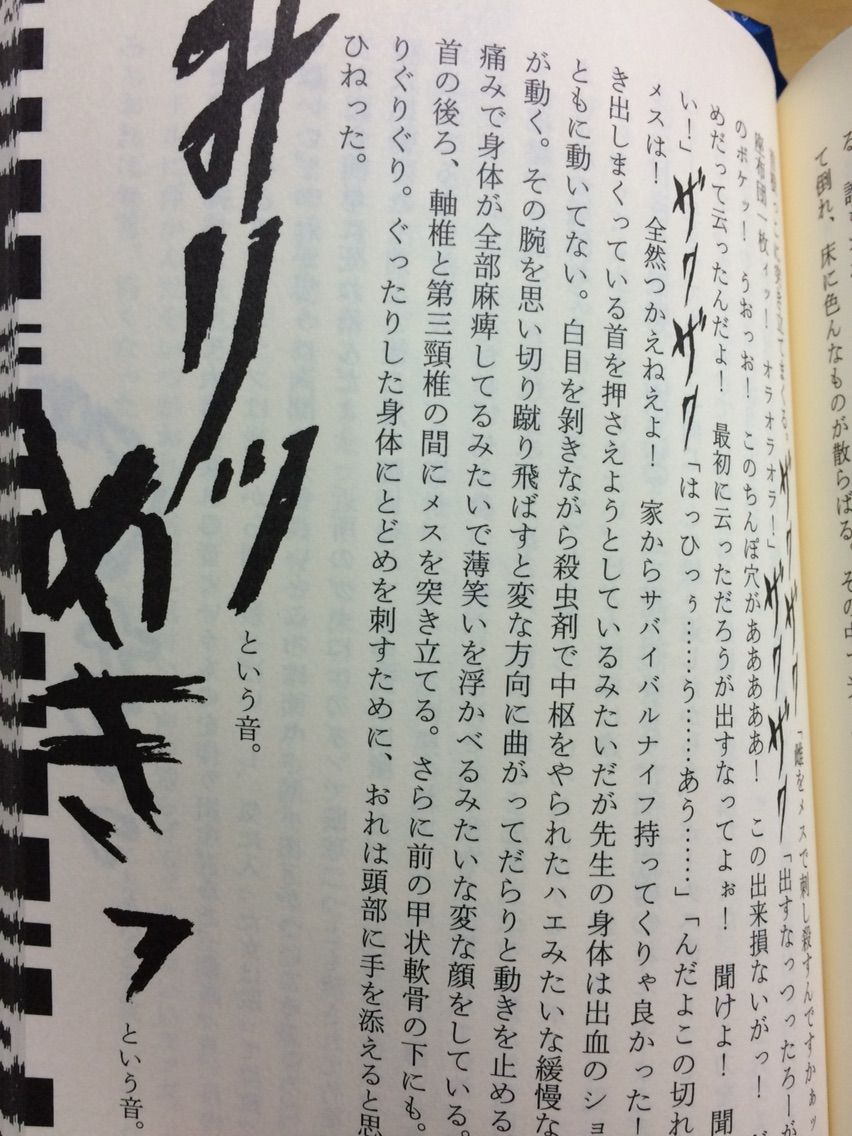 て倒れ、床に色んなものが散らばる。その
に突き立てまくる。ザクザク「雌をメスで刺し殺すんですかぁッ
座布団一枚ィッ！　オラオラオラ！」ザクザク「出すなっつったろーが
のポケッ！　うおっお！　このちんぽ穴がああああ！　この出来損ないがっ！
めだって云ったんだよ！　最初に云っただろうが出すなってよぉ！　聞けよ！　聞
い！」ザクザク「はっひっぅ……う……あう……」「んだよこの切れ
メスは！　全然つかえねえよ！　家からサバイバルナイフ持ってくりゃ良かった！
き出しまくっている首を押さえようとしているみたいだが先生の身体は出血のショ
ともに動いてない。白目を剝きながら殺虫剤で中枢をやられたハエみたいな緩慢な
が動く。その腕を思い切り蹴り飛ばすと変な方向に曲がってだらりと動きを止める
痛みで身体が全部麻痺してるみたいで薄笑いを浮かべるみたいな変な顔をしている。
首の後ろ、軸椎と第三頸椎の間にメスを突き立てる。さらに前の甲状軟骨の下にも。
りぐりぐり。ぐったりした身体にとどめを刺すために、おれは頭部に手を添えると思
ひねった。
みリッという音。
めきっという音。